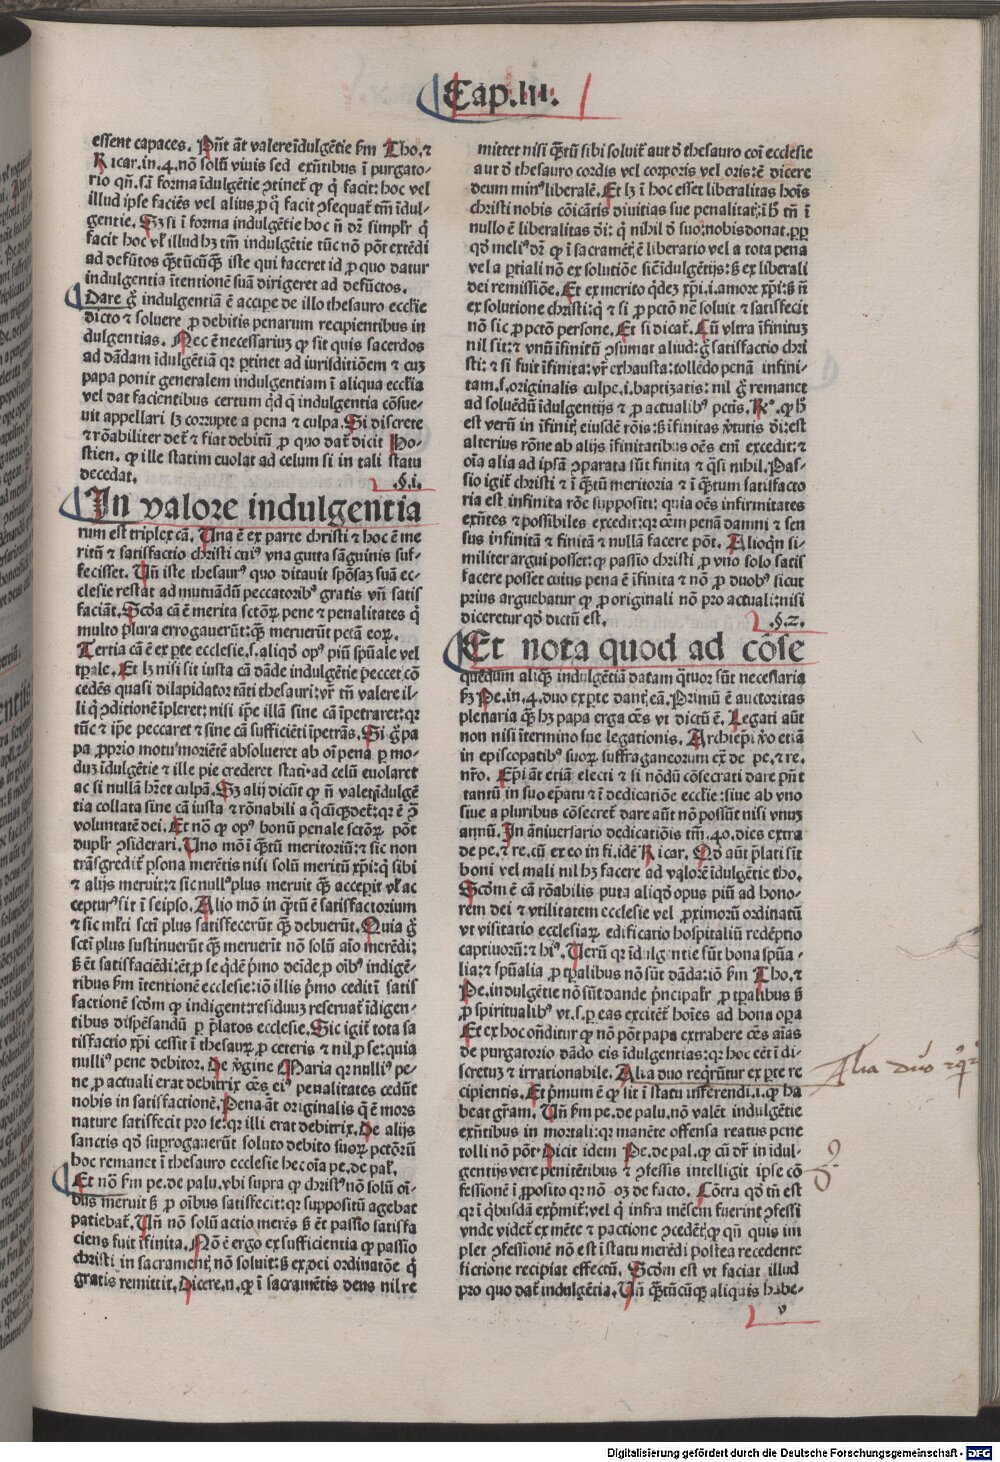 Cap.III.
essent capaces. Pñt āt valere īdulgētie ẜm Tho. ⁊
Ricar. in. 4. nō solū viuis sed exñtibus ī purgato-
rio qñ. s. ī forma īdulgētie ꝯtinet᷑ ꝙ q̇ facit: hoc vel
illud ipse faciēs vel alius ꝓ q̇ facit ꝯsequat᷑ tm̄ īdul-
gentie. Sꝫ si ī forma indulgētie hoc ñ dr̄ simplr̄ q̇
facit hoc vl̓ illud hꝫ tm̄ indulgētie tūc nō pōt extēdi
ad defūtos q̄tūcūqꝫ iste qui faceret id ꝓ quo datur
indulgentia ītentionē suā dirigeret ad defūctos.
Dare g̊ indulgentiā ē accipe de illo thesauro ecclīe
dicto ⁊ soluere ꝓ debitis penarum recipientibus in
dulgentias. Nec ē necessariuꝫ ꝙ sit quis sacerdos
ad dādam īdulgētiā qꝛ ꝑtinet ad iurisditiōem ⁊ cuꝫ
papa ponit generalem indulgentiam ī aliqua ecclīa
vel dat facientibus certum qd̓ q̇ indulgentia cōsue-
uit appellari lꝫ corrupte a pena ⁊ culpa. Si discrete
⁊ rōabiliter det᷑ ⁊ fiat debitū ꝓ quo dat᷑ dicit Ho-
stien. ꝙ ille statim euolat ad celum si in tali statu
decedat. .§.i.
In valore indulgentia
rum est triplex cā. Una ē ex parte christi ⁊ hoc ē me
ritū ⁊ satisfactio christi cuiꝰ vna gutta sāguinis suf-
fecisset. Uñ iste thesaurꝰ quo ditauit spōsaꝫ suā ec-
clesie restat ad mutuādū peccatoribꝰ gratis vñ satis
faciāt. Scd̓a cā ē merita sctōꝝ pene ⁊ penalitates q̇
multo plura errogauerūt: q̄ꝫ meruerūt pctā eoꝝ.
Tertia cā ē ex ꝑte ecclesie. s. aliqd̓ opꝰ piū spūale vel
tꝑale. Et lꝫ nisi sit iusta cā dāde indulgētie ꝑeccet cō
cedēs quasi dilapidator tāti thesauri: vr̄ tñ valere il-
li q̇ ꝯditionē īpleret: nisi ip̄e illā sine cā īpetraret: qꝛ
tūc ⁊ ip̄e peccaret ⁊ sine cā sufficiēti īpetrās. Si g̊ pa
pa ꝓprio motu moriētē absolueret ab oī pena ꝑ mo-
duꝫ īdulgētie ⁊ ille pie crederet stati ad celū euolaret
ac si nullā hr̄et culpā. Sꝫ alij dicūt ꝙ ñ valet īdulgē
tia collata sine cā iusta ⁊ rōnabili a q̇cūqꝫ det᷑: qꝛ ē ꝯ̄
voluntatē dei. Et nō ꝙ opꝰ bonū penale sctōꝝ pōt
duplr̄ ꝯsiderari. Uno mō ī q̄tū meritoriū: ⁊ sic non
trāsgredit᷑ ꝑsona merētis nisi solū meritū xp̄i: q̇ sibi
⁊ alijs meruit: ⁊ sic nullꝰ plus meruit q̄ꝫ acceꝑit vl̓ ac
cepturꝰ sit ī seipso. Alio mō in q̄tū ē satisfactorium
⁊ sic ml̓ti scti plus satisfecerūt q̄ꝫ debuerūt. Quia g̊
scti plus sustinuerūt q̄ꝫ meruerit nō solū aīo merēdi:
ꝫ ēt satisfaciēdi: ēt ꝓ se qd̓ē p̓mo deīde ꝓ oībꝰ indigē-
tibus ẜm ītentionē ecclesie: iō illis p̓mo cedit ī satis
factionē scd̓m ꝙ indigent: residuuꝫ reseruat᷑ īdigen-
tibus dispēsandū ꝑ p̄latos ecclesie. Sic igit᷑ tota sa
tisfactio xp̄i cessit ī thesauꝝ ꝓ ceteris ⁊ nil ꝓ se: quia
nulliꝰ pene debitor. De v̓gine Maria qꝛ nulliꝰ pe-
ne ꝓ actuali erat debitrix oēs eiꝰ penalitates cedūt
nobis in satisfactionē. Pena āt originalis q̄ ē mors
nature satisfecit pro se: qꝛ illi erat debitrix. De alijs
sanctis qd̓ suꝑrogauerūt soluto debito suoꝝ pctōrū
hoc remanet ī thesauro ecclesie hec oīa pe. de pal̓.
Et nō ẜm pe. de palu. vbi supra ꝙ christꝰ nō solū oī-
bus meruit ꝫ ꝓ oībus satisfecit: qꝛ suppositū agebat
patiebat᷑. Uñ nō solū actio merēs ꝫ ēt passio satisfa
ciens fuit īfinita. Nō ē ergo ex sufficientia ꝙ passio
christi in sacramēt᷑ nō soluit: ꝫ ex dei ordinatōe q̇
gratis remittit. Dicere. n. ꝙ ī sacramētis deus nil re
mittet nisi q̄tū sibi soluit᷑ aut d̓ thesauro coī ecclesie
aut d̓ thesauro cordis vel corporis vel oris: ē dicere
deum minꝰ liberalē. Et lꝫ ī hoc esset liberalitas hoīs
christi nobis cōicātis diuitias sue penalitat᷑: ī h̓ tñ ī
nullo ē liberalitas dī: q̇ nihil d̓ suo nobis donat. ꝓꝑ
qd̓ meliꝰ dr̄ ꝙ ī sacramēt᷑ ē liberatio vel a tota pena
vel a ꝑtiali nō ex solutiōe sic̄ ē īdulgētijs: ꝫ ex liberali
dei remissiōe. Et ex merito qd̓eꝫ xp̄i. i. amore xp̄i: ꝫ ñ
ex solutione christi: q̇ ⁊ si ꝓ pctō nē soluit ⁊ satisfecit
nō sic ꝓ pctō persone. Et si dicat᷑. Cū vltra īfinituꝫ
nil sit: ⁊ vnū īfinitū ꝯsumat aliud: g̊ satisfactio chri
sti: ⁊ si fuit īfinita: vr̄ exhausta: tollēdo penā infini-
tam. s. originalis culpe. i. baptizatis: nil g̊ remanet
ad soluēdū īdulgentijs ⁊ ꝓ actualibꝰ pctis. Rº. ꝙ h̓
est verū in īfinit᷑ eiusdē rōis: ꝫ īfinitas v̓tutis dī: est
alterius rōne ab alijs īfinitatibus oēs enī excedit: ⁊
oīa alia ad ipsā ꝯparata sūt finita ⁊ q̇si nihil. Pas-
sio igit᷑ christi ⁊ ī q̄tū meritoria ⁊ ī q̄tum satisfacto
ria est infinita rōe suppositi: quia oēs infirmitates
exñtes ⁊ possibiles excedit: qꝛ oēm penā damni ⁊ sen
sus infinitā ⁊ finitā ⁊ nullā facere pōt. Alioqn̄ si-
militer argui posset: ꝙ passio christi ꝓ vno solo satis
facere posset cuius pena ē īfinita ⁊ nō ꝓ duobꝰ sicut
prius arguebatur ꝙ ꝓ originali nō pro actuali: nisi
diceretur qd̓ dictū est. .§.2.
Et nota quod ad cōse
quedum aliqꝫ indulgētiā datam q̄tuor sūt necessaria
ẜꝫ Pe. in. 4. duo ex ꝑte dant᷑ eā. Primū ē auctoritas
plenaria q̄ꝫ hꝫ papa erga oēs vt dictū ē. Legati aūt
non nisi ītermino sue legationis. Archiep̄i v̓o etiā
in episcopatibꝰ suoꝝ suffraganeorum ex̄ de pe. ⁊ re.
nr̄o. Ep̄i āt etiam electi ⁊ si nōdū cōsecrati dare pñt
tantū in suo ep̄atu ⁊ ī dedicatiōe ecclīe: siue ab vno
siue a pluribus cōsecret᷑ dare aūt nō possūt nisi vnuꝫ
annū. In āniuersario dedicatiōis tm̄. 40. dies extra
de pe. ⁊ re. cū ex eo in fi. idē Ricar. Qd̓ aūt p̄lati sīt
boni vel mali nil hꝫ facere ad valorē īdulgētie tho.
Scd̓m ē cā rōabilis puta aliqd̓ opus piū ad hono-
rem dei ⁊ vtilitatem ecclesie vel ꝓximorū ordinatū
vt visitatio ecclesiaꝝ edificatio hospitaliū redēptio
captiuorū: ⁊ hiꝰ. Uerū qꝛ īdulgentie sūt bona spūa-
lia: ⁊ spūalia ꝓ tꝑalibus nō sūt dāda: iō ẜm Tho. ⁊
Pe. indulgētie nō sūt dande p̓ncipalr̄ ꝓ tꝑalibus ꝫ
ꝓ spiritualibꝰ vt. s. ꝑ eas excitēt᷑ hoīes ad bona oꝑa
Et ex hoc oñditur ꝙ nō pōt papa extrahere oēs aīas
de purgatorio dādo eis īdulgentias: qꝛ hoc eēt ī di-
scretuꝫ ⁊ irrationabile. Alia duo reqrūtur ex ꝑte re
cipientis. Et p̓mum ē ꝙ sit ī statu īnferendi. i. ꝙ ha
beat gr̄am. Uñ ẜm pe. de palu. nō valēt indulgētie
exñtibus in mortali: qꝛ manēte offensa reatus pene
tolli nō pōt. Dicit idem Pe. de pal. ꝙ cū dr̄ in idul-
gentijs vere penitētibus ⁊ ꝯfessis intelligit ipse cō
fessionē ī ꝓposito qꝛ nō oꝫ de facto. Cōtra qd̓ tñ est
qꝛ ī q̇busdā exp̓mit᷑: vel q̇ infra mēsem fuerint ꝯfessi
vnde videt᷑ ex mēte ⁊ pactione ꝯcedēt᷑: ꝙ qñ quis im
plet ꝯfessionē nō est ī statu merēdi postea recedente
fictione recipiat effectū. Scd̓m est vt faciat illud
pro quo dat᷑ indulgētia. Uñ q̄tūcūqꝫ aliquis habe-
v
Alia duo
Digitalisierung gefördert durch die Deutsche Forschungsgemeinschaft - DFG